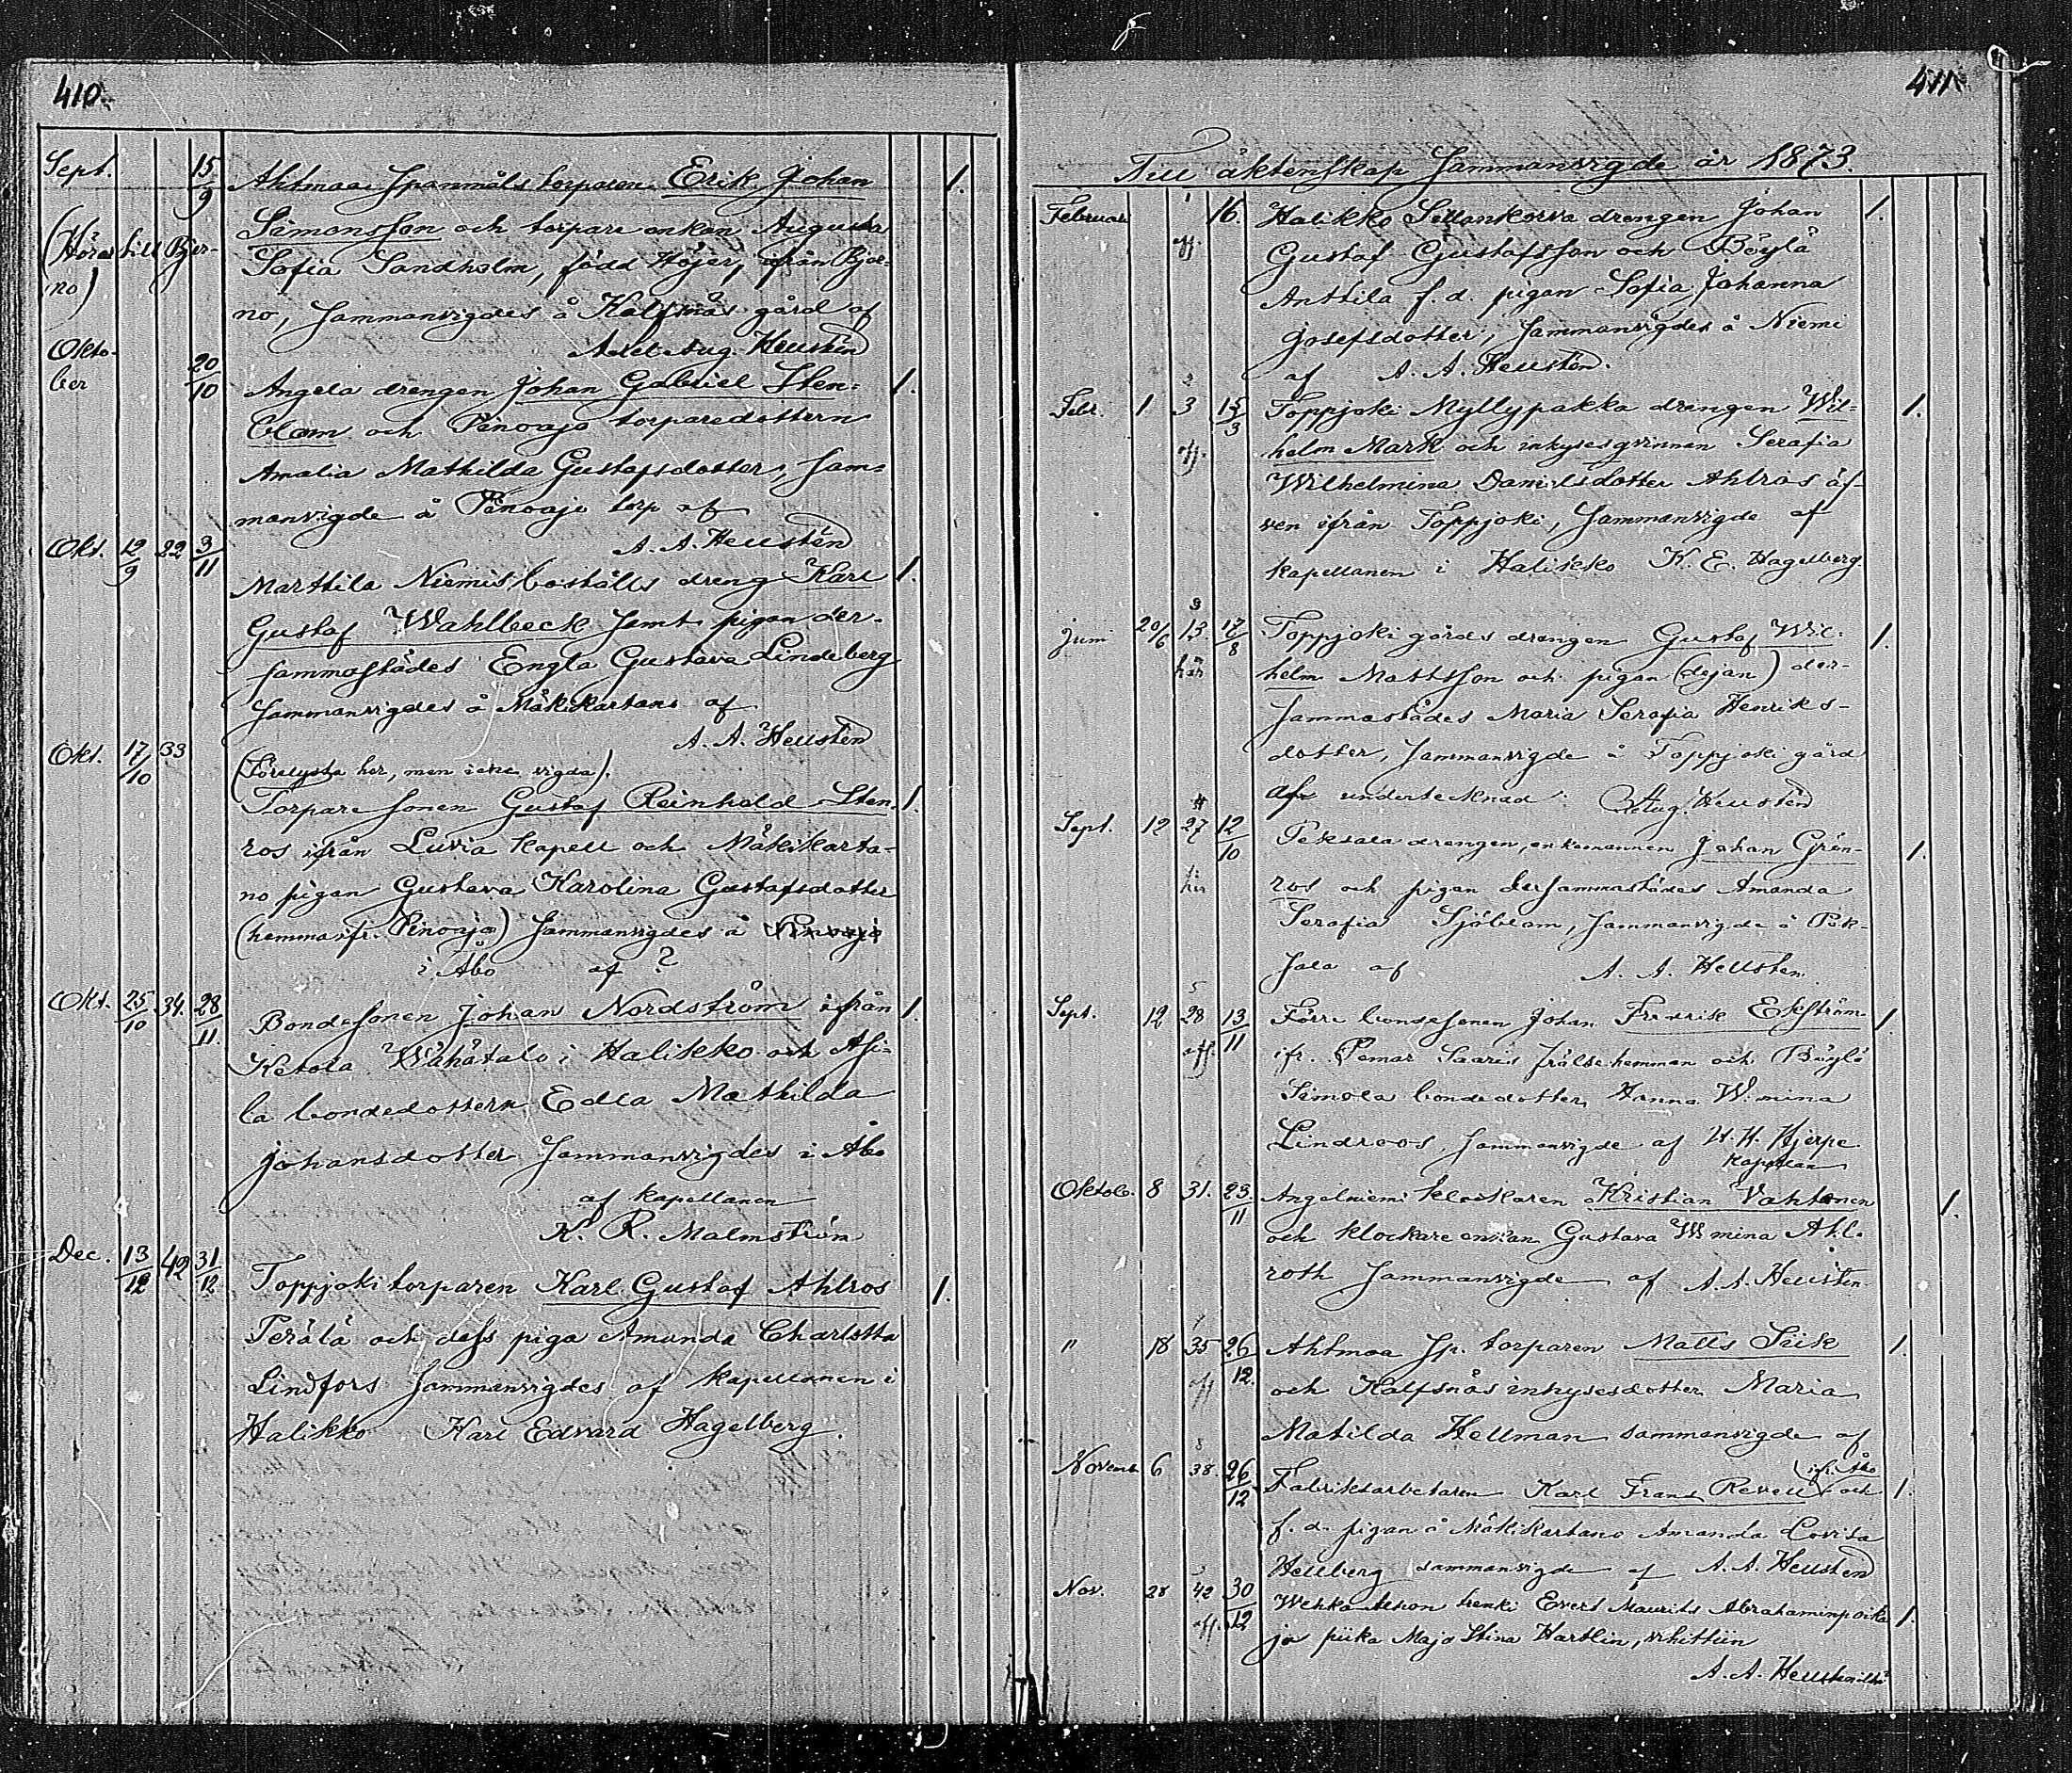 410.
Sept. 15/9 Ahtmaa Spanmåls torparen Erik Johan 1.
Simonsson och torpare enkan Augusta
(Hörer till Bjer-
no)
Sofia Sandholm, född Höjer, från Bjer-
no, sammanvigdes å Kalfsnäs gård af
Axel Aug. Hellstén
Okto-
ber 20/10 Angela drengen Johan Gabriel Sten- 1.
blom och Pinoajo torparedottern
Amalia Mathilda Gustafsdotter, sam-
manvigde å Pinoajo torp af
A. A. Hellstén
Okt. 12/9 22 3/11 Marttila Niemis boställs dreng Karl 1.
Gustaf Wahlbeck samt pigan der-
sammastädes Engla Gustava Lindeberg
sammanvigdes å Mäkikartano af
A. A. Hellstén
Okt. 17/10 33 (Förelysta her, men icke vigda).
Torpare sonen Gustaf Reinhold Sten- 1.
ros ifrån Luvia Kapell och Mäkikarta-
no pigan Gustava Karolina Gustafsdotter
(hemma ifr. Pinoajo) sammanvigdes å Pinoajo
i Åbo af ?
Okt. 25/10 34. 28/11 Bondesonen Johan Nordström ifrån 1.
Ketola Wähätalo i Halikko och Asi-
la bondedottern Edla Mathilda
Johansdotter sammanvigdes i Åbo
af kapellanen
K. R. Malmström
Dec. 13/12 42 31/12 Toppjoki torparen Karl Gustaf Ahlros 1.
Perälä och dess piga Amanda Charlotta
Lindfors sammanvigdes af kapellanen i
Halikko Karl Edvard Hagelberg.
411.
Till äktenskap Sammanvigde år 1873.
Februari 1 16. Halikko Sillankorva drengen Johan 1.
aff. Gustaf Gustafsson och Böylä
Anttila f. d. pigan Sofia Johanna
Josefsdotter, sammanvigdes å Niemi
af A. A. Hellstén.
2
Febr. 1 3 15/3 Toppjoki Myllypakka drengen Wil- 1.
aff. helm Mark och inhysesqvinnan Serafia
Wilhelmina Danielsdotter Ahlros äf-
ven ifrån Toppjoki, sammanvigde af
kapellanen i Halikko K. E. Hagelberg
3
Juni 20/6 13. 17/8 Toppjoki gårds drengen Gustaf Wil- 1.
här helm Mattsson och pigan (dejan) der-
sammastädes Maria Serafia Henriks-
dotter, sammanvigde å Toppjoki gård
af undertecknad: Aug. Hellstén
4
Sept. 12 27 12/10 Peksala drengen, enkemannen Johan Grön- 1.
här ros och pigan dersammastädes Amanda
Serafia Sjöblom, sammanvigde å Pek-
sala af A. A. Hellstén.
5
Sept. 12 28 13/11 Förre bondesonen Johan Fredrik Ekström 1.
aff. ifr. Pemar Saaris frälse hemman och Böylä
Simola bondedotter Hanna W:mina
Lindroos, sammanvigde af H. H. Hjerpe
Kapellan
Oktob. 8 31. 23/11 Angelniemi klockaren Kristian Vahtonen 1.
och klockare enkan Gustava W:mina Ahl-
roth sammanvigde af A. A. Hellstén.
7
" 18 35 26/12. Ahtmaa sp. torparen Matts Siik 1.
aff och Kalfsnäs inhysesdotter Maria
Matilda Hellman sammanvigde af
8
Novemb. 6 38. 26/12 Fabriksarbetaren Karl Frans Revell (ifr. Åbo och 1.
f. d. pigan å Mäkikartano Amanda Lovisa
Hellberg sammanvigde af A. A. Hellstén
Nov. 28 42 30/12 renki Evert Maurits Abrahaminpoika 1.
aff. ja piika Maja Stina Hartlin, vihittiin
A. A.